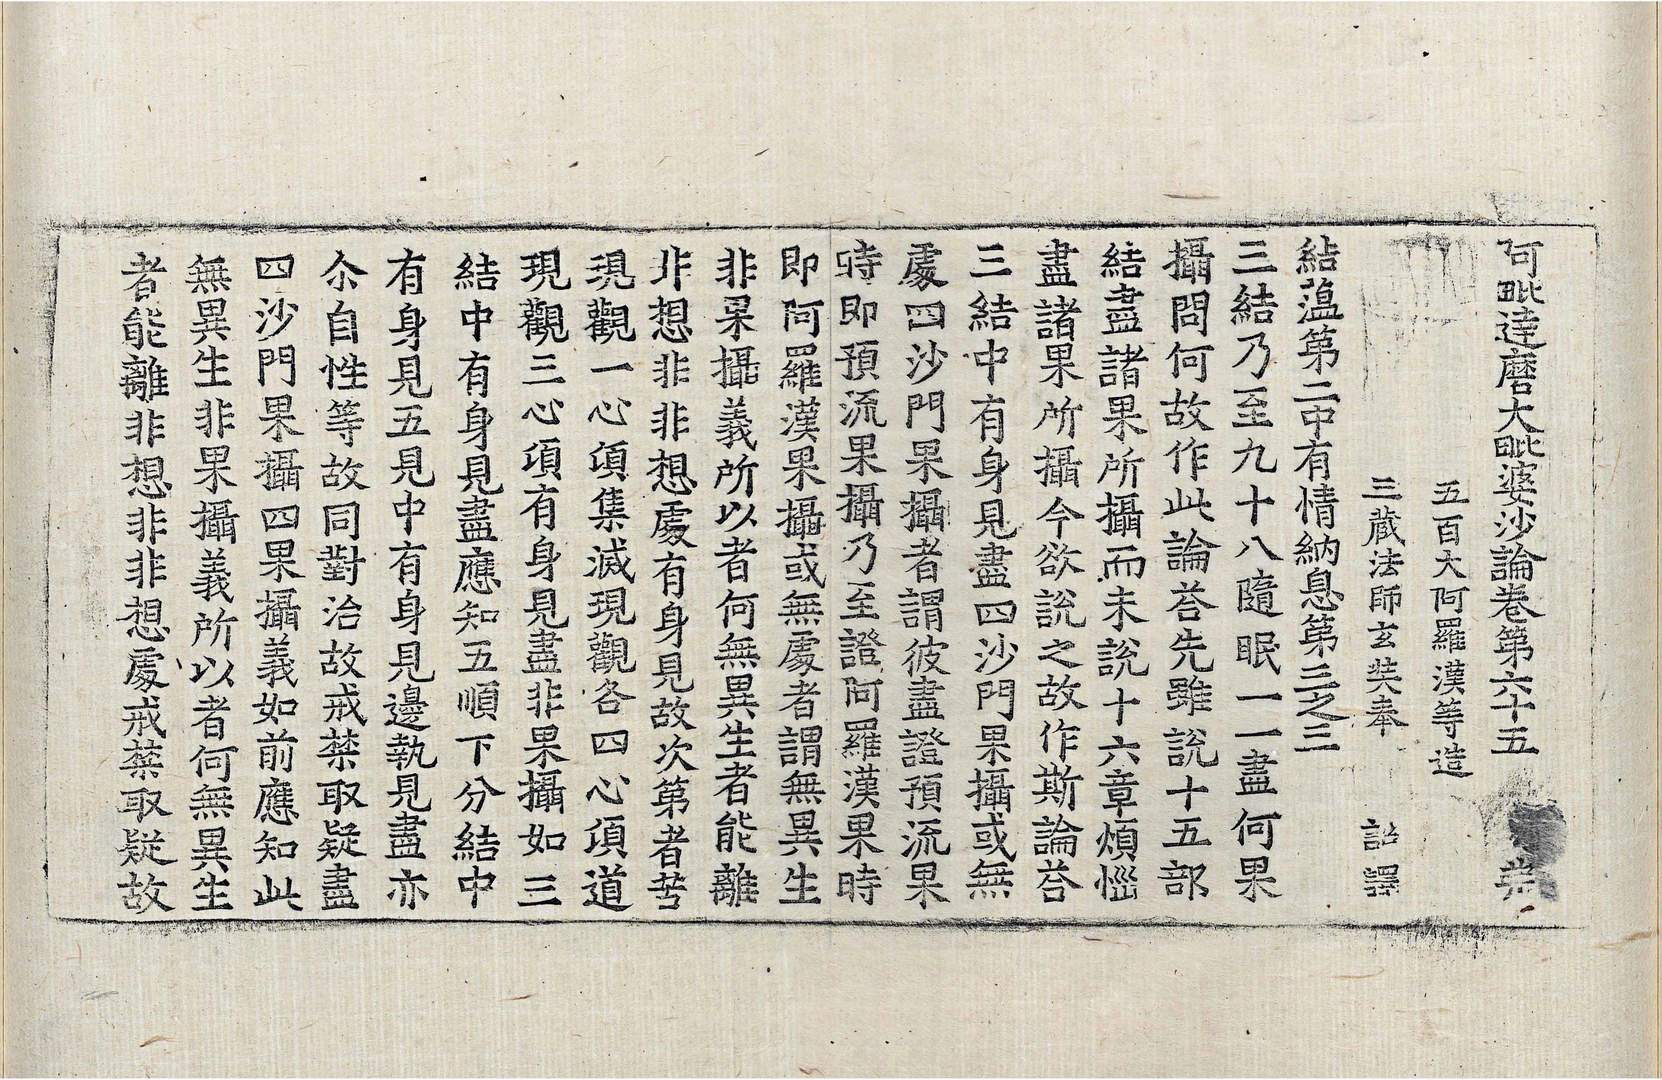 阿毗達磨大毗婆沙論卷第六十五
五百大阿羅漢等造
三藏法師玄奘奉 詔譯
結蕰第二中有情納息第三之三
三結乃至九十八隨眠一一盡何果
攝問何故作此論荅先雖說十五部
結盡諸果所攝而未說十六章煩惱
盡諸果所攝今欲說之故作斯論荅
三結中有身見盡四沙門果攝或無
處四沙門果攝者謂彼盡證預流果
時即預流果攝乃至證阿羅漢果時
即阿羅漢果攝或無處者謂無異生
非果攝義所以者何無異生者能離
非想非非想處有身見故次第者苦
現觀一心頃集滅現觀各四心頃道
現觀三心頃有身見盡非果攝如三
結中有身見盡應知五順下分結中
有身見五見中有身見邊執見盡亦
尒自性等故同對治故戒禁取疑盡
四沙門果攝四果攝義如前應知此
無異生非果攝義所以者何無異生
者能離非想非非想處戒禁取疑故